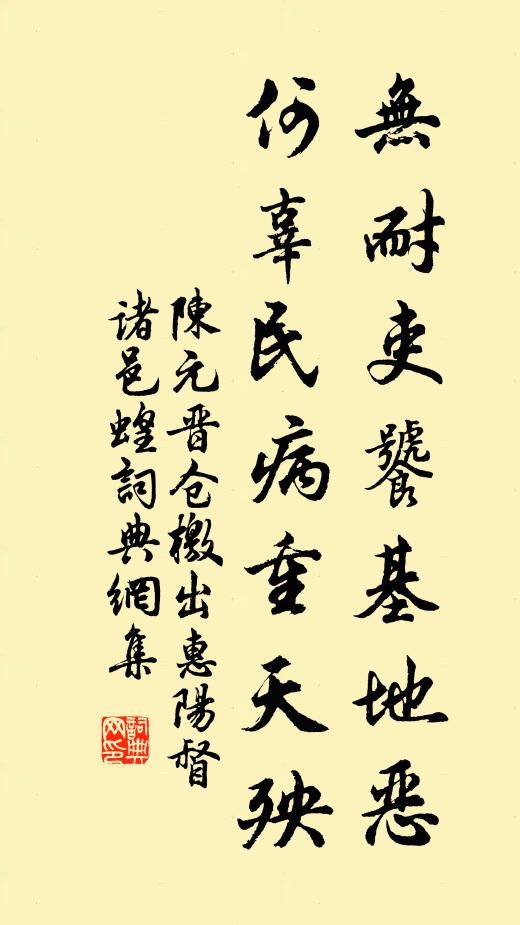 無耐吏饕基地惡
何辜民病重天殃
陳元晋仓檄出惠陽督
诸邑蝗詞典網集
詞典网印